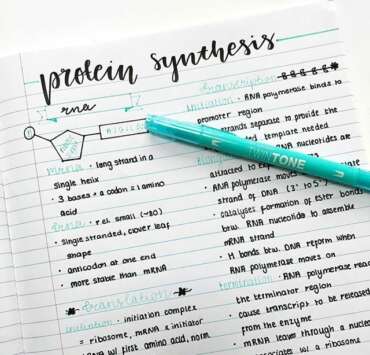 protein synthesis
rna
mRNA · long strand in a
single helix
· 3 bases = a codon = 1 amino
acid
· rel. small (~80)
· single stranded, clover leaf
shape
· anticodon at one end
· more stable than mRNA
translation
initiation · initiation complex
= ribosome, mRNA & initiator
w/ first amino acid, norm
transcription
initiation · RNA polymerase binds to
promoter region
strands separate to provide the
template needed
TWINTONE
RNA nucleotides are
attracted to
RNA polymerase moves
strand of DNA (3' to 5')
· catalyses formation of ester bonds
btw. RNA nucleotides to assemble
mRNA strand
· H bonds btw. DNA reform when
RNA polymerase moves on
termination · RNA polymerase reac
the terminator region
· cause transcript to be released
from the enzyme
· mRNA leaves through a nuclea
associate w/ a ribosome